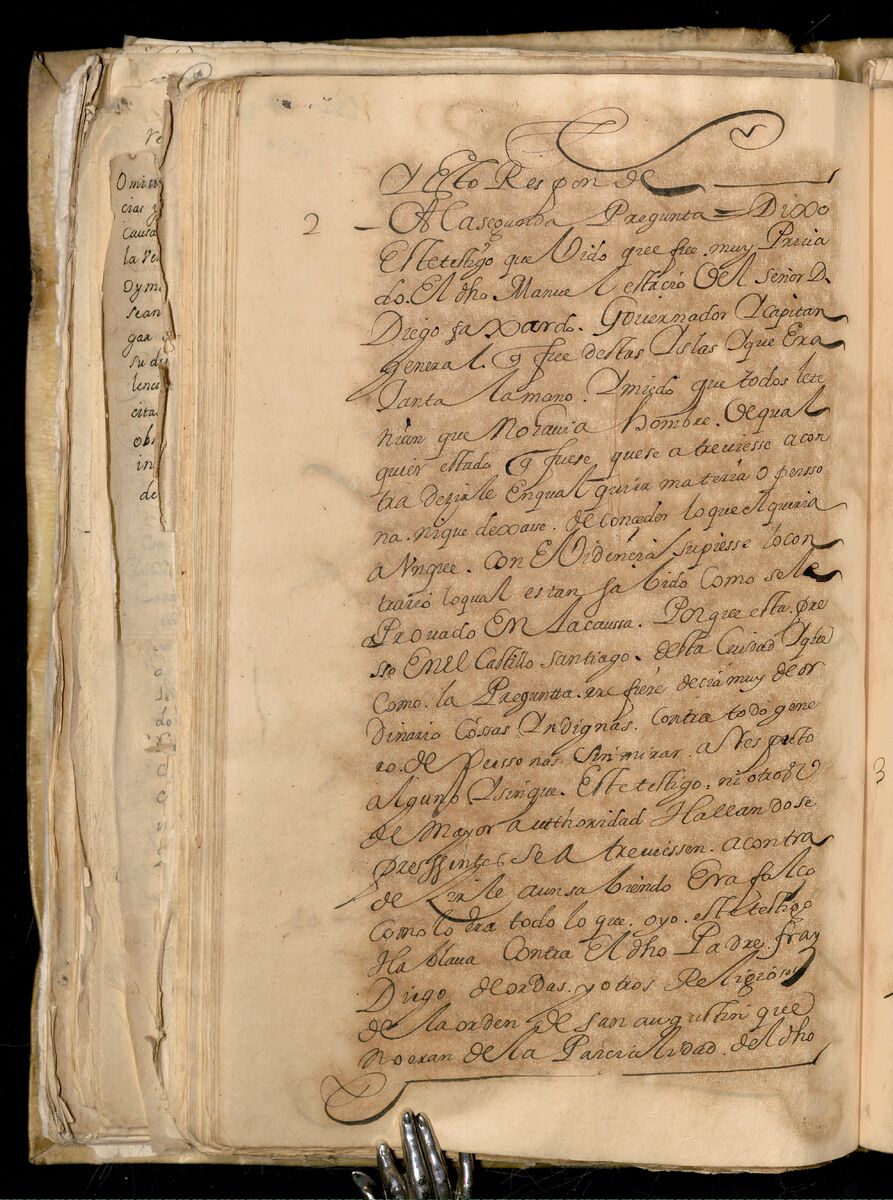 Y Esto Responde
2 – A la segunda Pregunta = Dixo
Este testigo que Vido que fue muy Priva
do. El dho Manuel estacio Del señor D.
Diego faxardo. Governador Y capitan
general. q fue destas Yslas Y que Era
tanta la mano. Y miedo que todos le te
nian que No havia hombre. De qual
quier estado q fuese que se atreviesse a con
tra dezirle En qual quier materia o persso
na. ni que dexasse. de conceder lo que el queria
a Vnque. con Evidencia supiesse lo con
trario lo qual es tan sabido Como se le
a Provado En la caussa. Porque esta pre
sso En el Castillo Santiago. desta Ciudad Y que
como. la Pregunta. refiere decia muy de or
dinario Cossas Yndignas. contra todo gene
ro. de Perssonas sin mirar. a Respeto
alguno Y sin que. Este testigo. ni otros
de Mayor authoridad Hallandose
pressentes se atreviessen. a contra
de Zirle aun sabiendo Era falço
Como lo Era todo lo que. oyo. este testigo
Hablava Contra El dho Padre fray
Diego de ordas. y otros Religiosos
de la orden de san augustin que
no eran de la Parcialidad. del dho
Omi
cias y
causa
la ve
Oym
sean
gar
su di
lence
cita
ob
in
de
3